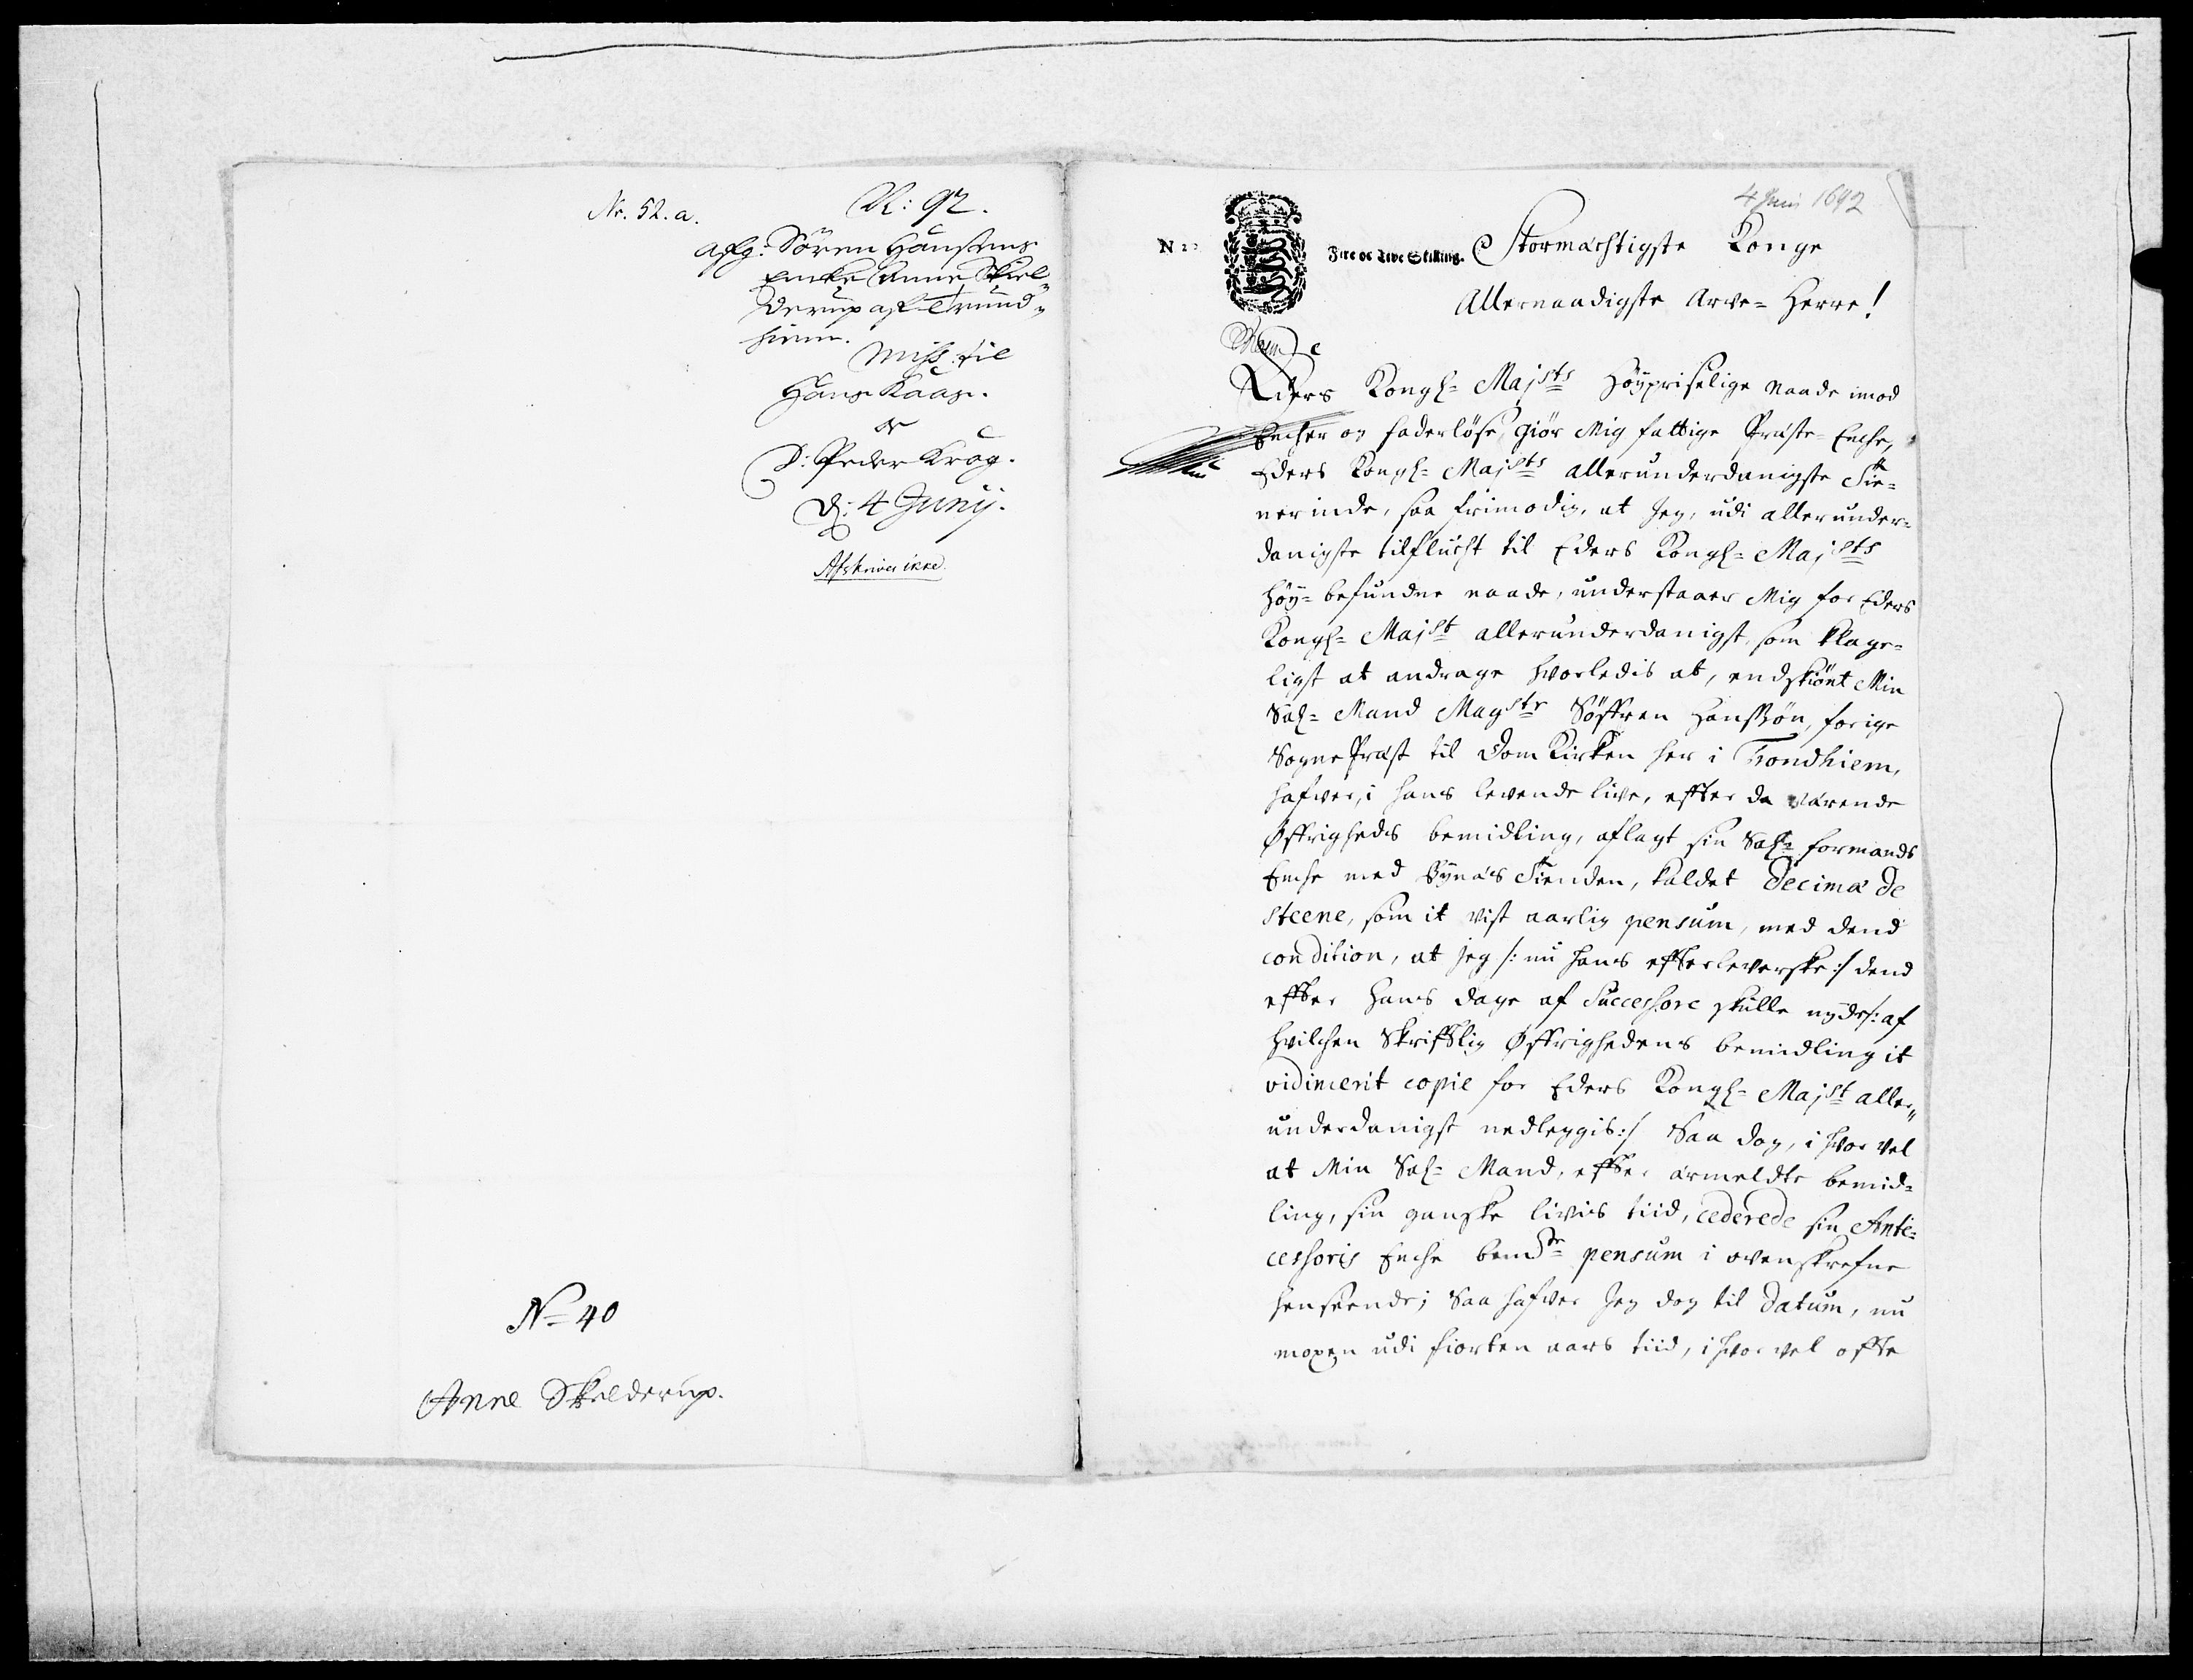 Nr. 52. a.
R: 92.
afg: Sören Hansens
Encke Anne Skiel„
derup af Trund„
hiem.
Miss. til
Hans Kaas.
&
D: Peder Krog.
D: 4 Junij.
Afskrives ikke.
No 40
Anne Skelderup.
4 Juni 1692
N 2
Fire oc Tive Skilling.
Stormächtigste Konge
Allernaadigste Arve= Herre!
Eders Kongl= Majsts Höypriselige Naade imod
Encher og faderlöse, giör Mig fattige Präste= Enche,
Eders Kongl= Majsts allerunderdanigste Tie=
nerinde, saa frimodig, at Jeg, udi allerunder=
danigste tilflucht til Eders Kongl= Majsts
höy= befundne naade, understaaer Mig for Eders
Kongl= Majst allerunderdanigst, som klage=
ligst at andrage hvorledis at, endskiönt Min
Sal= Mand Magstr Söffren Hanssön, forige
Sogne Präst til Dom Kirken her i Trondhiem,
hafver, i hans levende live, effter da värende
Øffrigheds bemidling, aflagt sin Sal= formands
Enche med Bynäs Tienden, kaldet Decimæ de
Steene, som it vist aarlig pensum, med dend
condition, at jeg /: nu hans effterleverske :/ dend
effter hans dage af Successore skulle nyde /: af
hvilchen Skrifftlig Øffrighedens bemidling it
vidimerit copie for Eders Kongl= Majst aller„
underdanigst nedleggis :/ Saa dog, i hvor vel
at Min Sal= Mand, effter ärmeldte bemid=
ling, sin gandske livis tiid, cederede sin Ante=
cessoris Enche bemde pensum i ovenskrefne
henseende; Saa hafver Jeg dog til Datum, nu
moxen udi fiorten aars tiid, i hvor vel offte